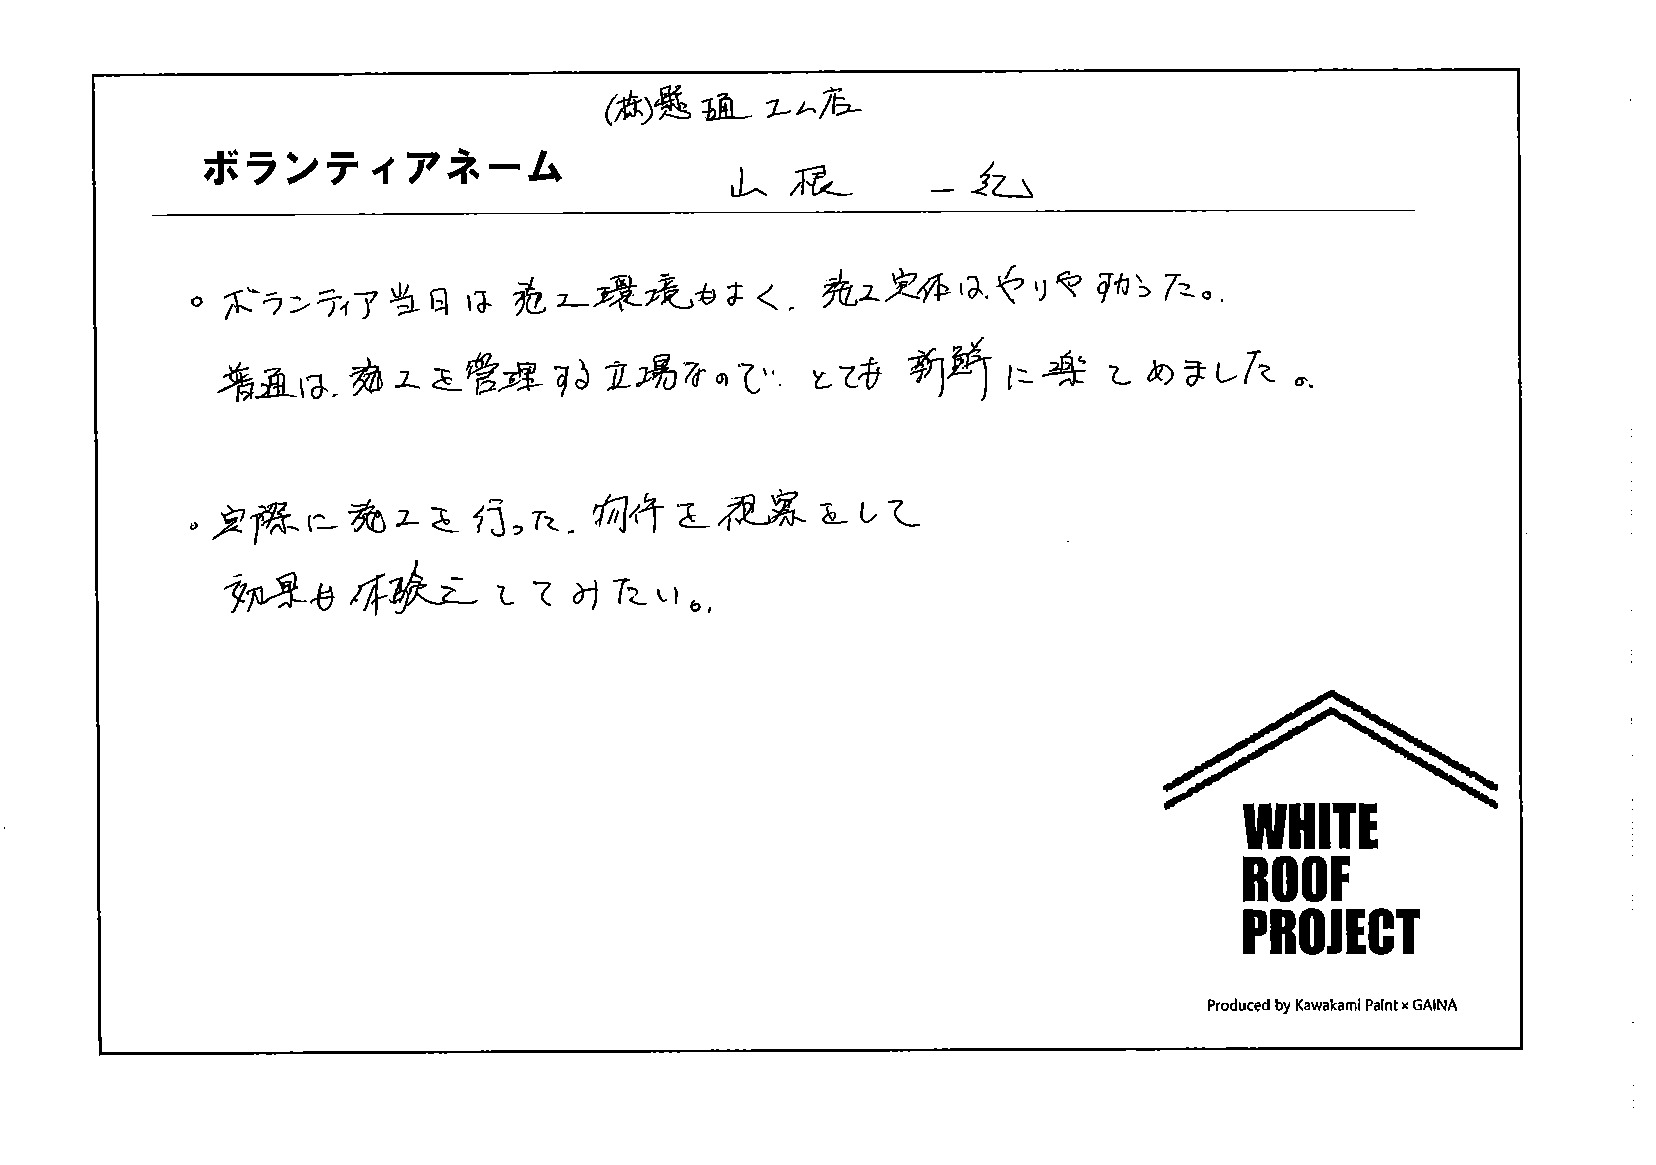 (株)懸通工ム店
ボランティアネーム
山根 一紀
。ボランティア当日は施工環境もよく、施工実体は、やりやすかった。
普通は、施工を管理する立場なので、とても新鮮に楽しめました。
。実際に施工を行った、物件を視察をして
効果も体験をしてみたい。
WHITE
ROOF
PROJECT
Produced by Kawakami Paint × GAINA